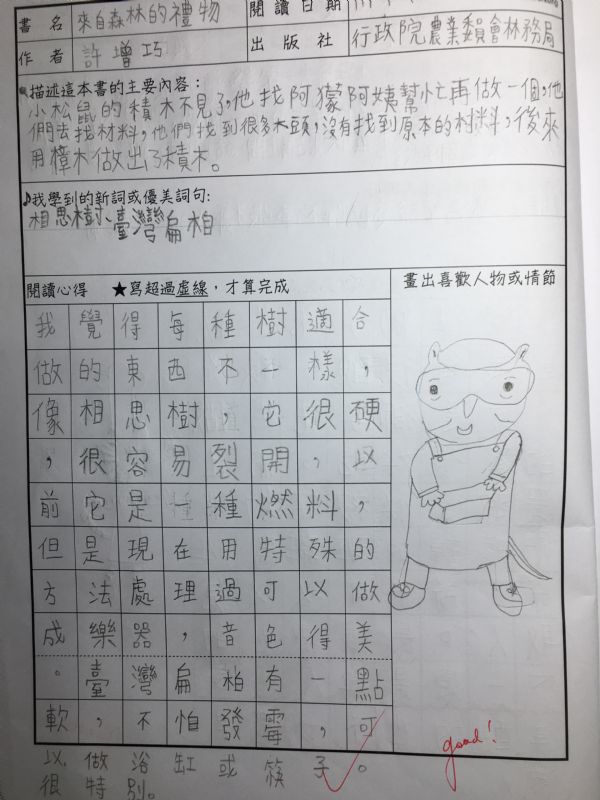 書名 來自森林的禮物 閱讀日期
作者 許增巧 出版社 行政院農業委員會林務局
描述這本書的主要內容：
小松鼠的積木不見了，他找阿獴阿姨幫忙再做一個，他
們去找材料，他們找到很多木頭，沒有找到原本的材料，後來
用樟木做出了積木。
♪我學到的新詞或優美詞句：
相思樹、臺灣扁柏
閱讀心得 ★寫超過虛線，才算完成
畫出喜歡人物或情節
我覺得每種樹適合
做的東西不一樣，
像相思樹，它很硬
，很容易裂開，以
前它是一種燃料，
但是現在用特殊的
方法處理過可以做
成樂器，音色得美
。臺灣扁柏有一點
軟，不怕發霉，可
以做浴缸或筷子。
很特別。
good!